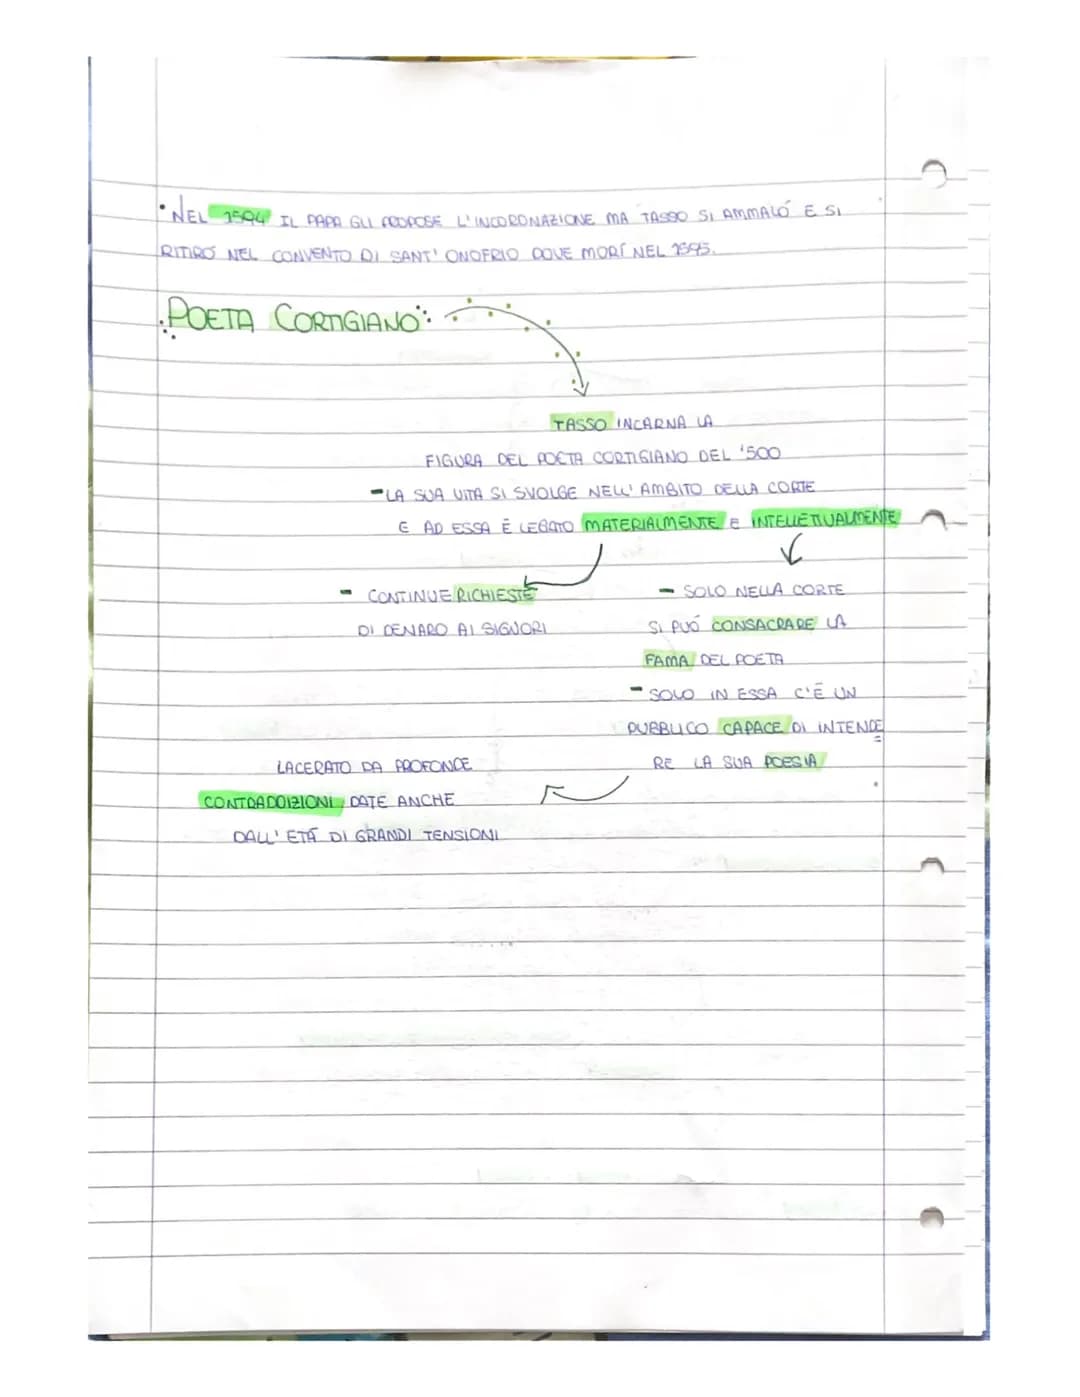 • NEL 1594 IL PAPA GLI PROPOSE L'INCORONAZIONE MA TASSO SI AMMALÒ E SI
RITIRÒ NEL CONVENTO DI SANT' ONOFRIO DOVE MORÍ NEL 1595.
POETA CORTIGIANO:
TASSO INCARNA LA
FIGURA DEL POETA CORTIGIANO DEL '500
- LA SUA VITA SI SVOLGE NELL' AMBITO DELLA CORTE
E AD ESSA È LEGATO MATERIALMENTE E INTELLETTUALMENTE
- CONTINUE RICHIESTE
DI DENARO AI SIGNORI
- SOLO NELLA CORTE
SI PUÓ CONSACRARE LA
FAMA DEL POETA
- SOLO IN ESSA C'È UN
PUBBLICO CAPACE DI INTENDE
RE LA SUA POESIA
LACERATO DA PROFONDE
CONTRADDIZIONI DATE ANCHE
DALL' ETÁ DI GRANDI TENSIONI